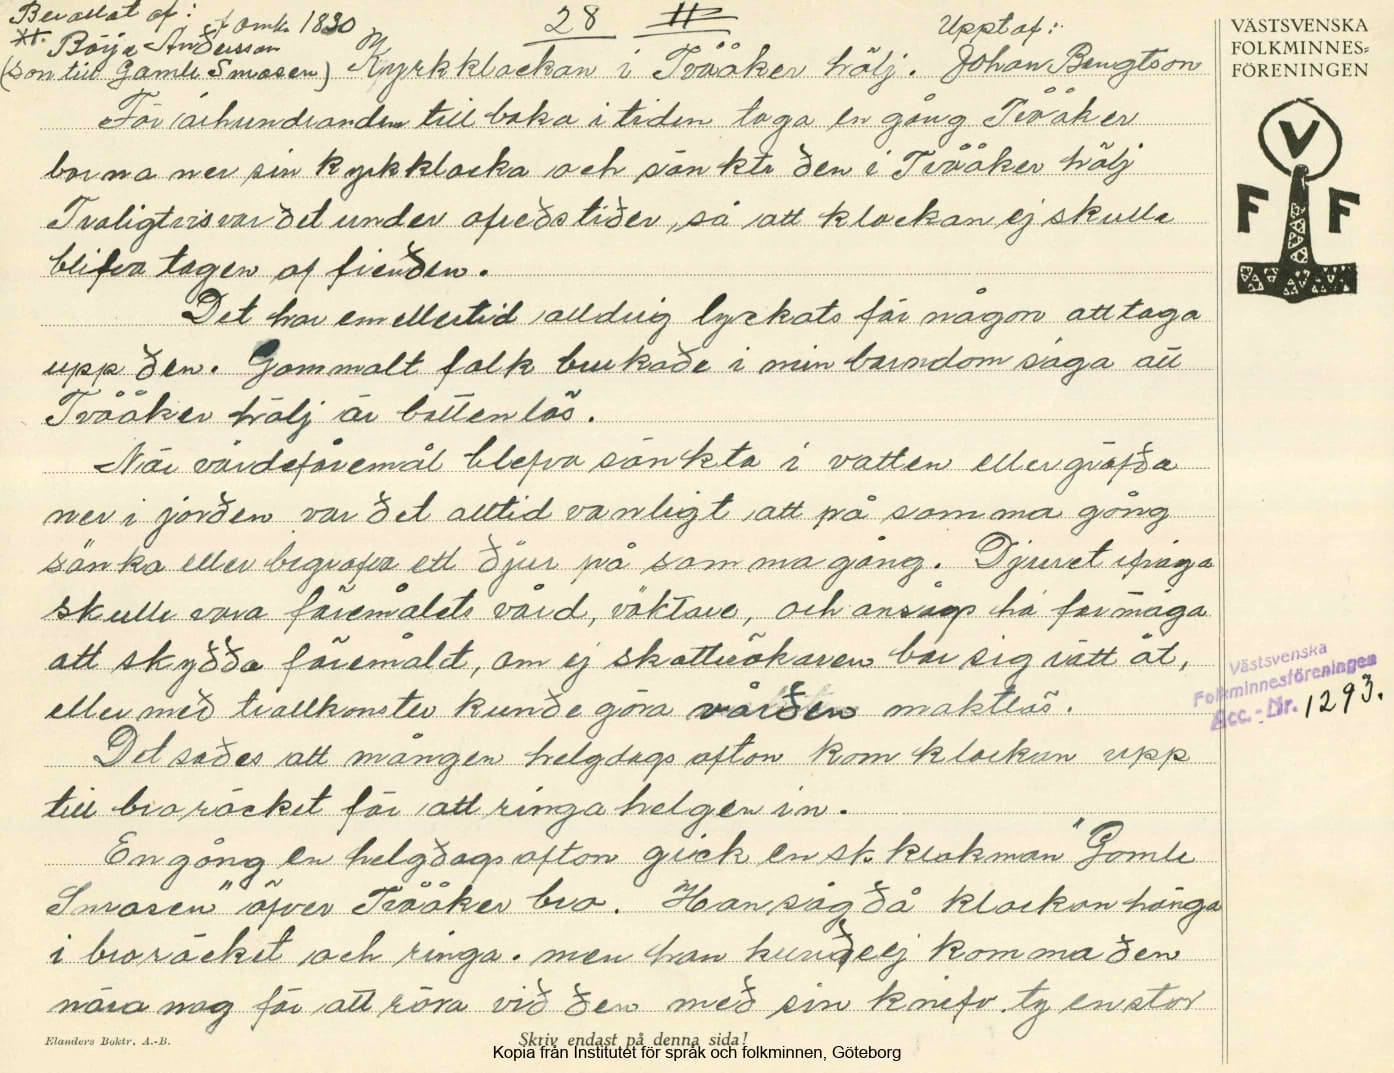 Berättat af: f. omk. 1830 28 H Uppt af:
Börje Andersson
(son till Gamle Smasen) Kyrkklockan i Tvååker hölj. Johan Bengtson
För århundranden till baka i tiden toga en gång Tvååker
borna ner sin kyrkklocka och sänkte den i Tvååker hölj
Troligtvis var det under ofredstider, så att klockan ej skulle
blifva tagen af fienden.
Det har emellertid alldrig lyckats för någon att taga
upp den. Gammalt folk brukade i min barndom säga att
Tvååker hölj är bottenlös.
När värdeföremål blefva sänkta i vatten eller gräfda
ner i jorden var det alltid vanligt att på samma gång
sänka eller begrafva ett djur på samma gång. Djuret ifråga
skulle vara föremålets vård, väktare, och ansågs ha förmåga
att skydda föremålet, om ej skattsökaren bar sig rätt åt,
eller med trollkonster kunde göra vården maktlös.
Det sades att mången helgdags afton kom klockan upp
till broräcket för att ringa helgen in.
En gång en helgdags afton gick en sk. klokman "Gamle
Smasen" öfver Tvååker bro. Han såg då klockan hänga
i broräcket och ringa. men han kunde ej komma den
nära nog för att röra vid den med sin knif. ty en stor
Elanders Boktr. A.-B.
Skriv endast på denna sida!
Kopia från Institutet för språk och folkminnen, Göteborg
VÄSTSVENSKA
FOLKMINNES=
FÖRENINGEN
V
F F
Västsvenska
Folkminnesföreningen
Acc.-Nr. 1293.